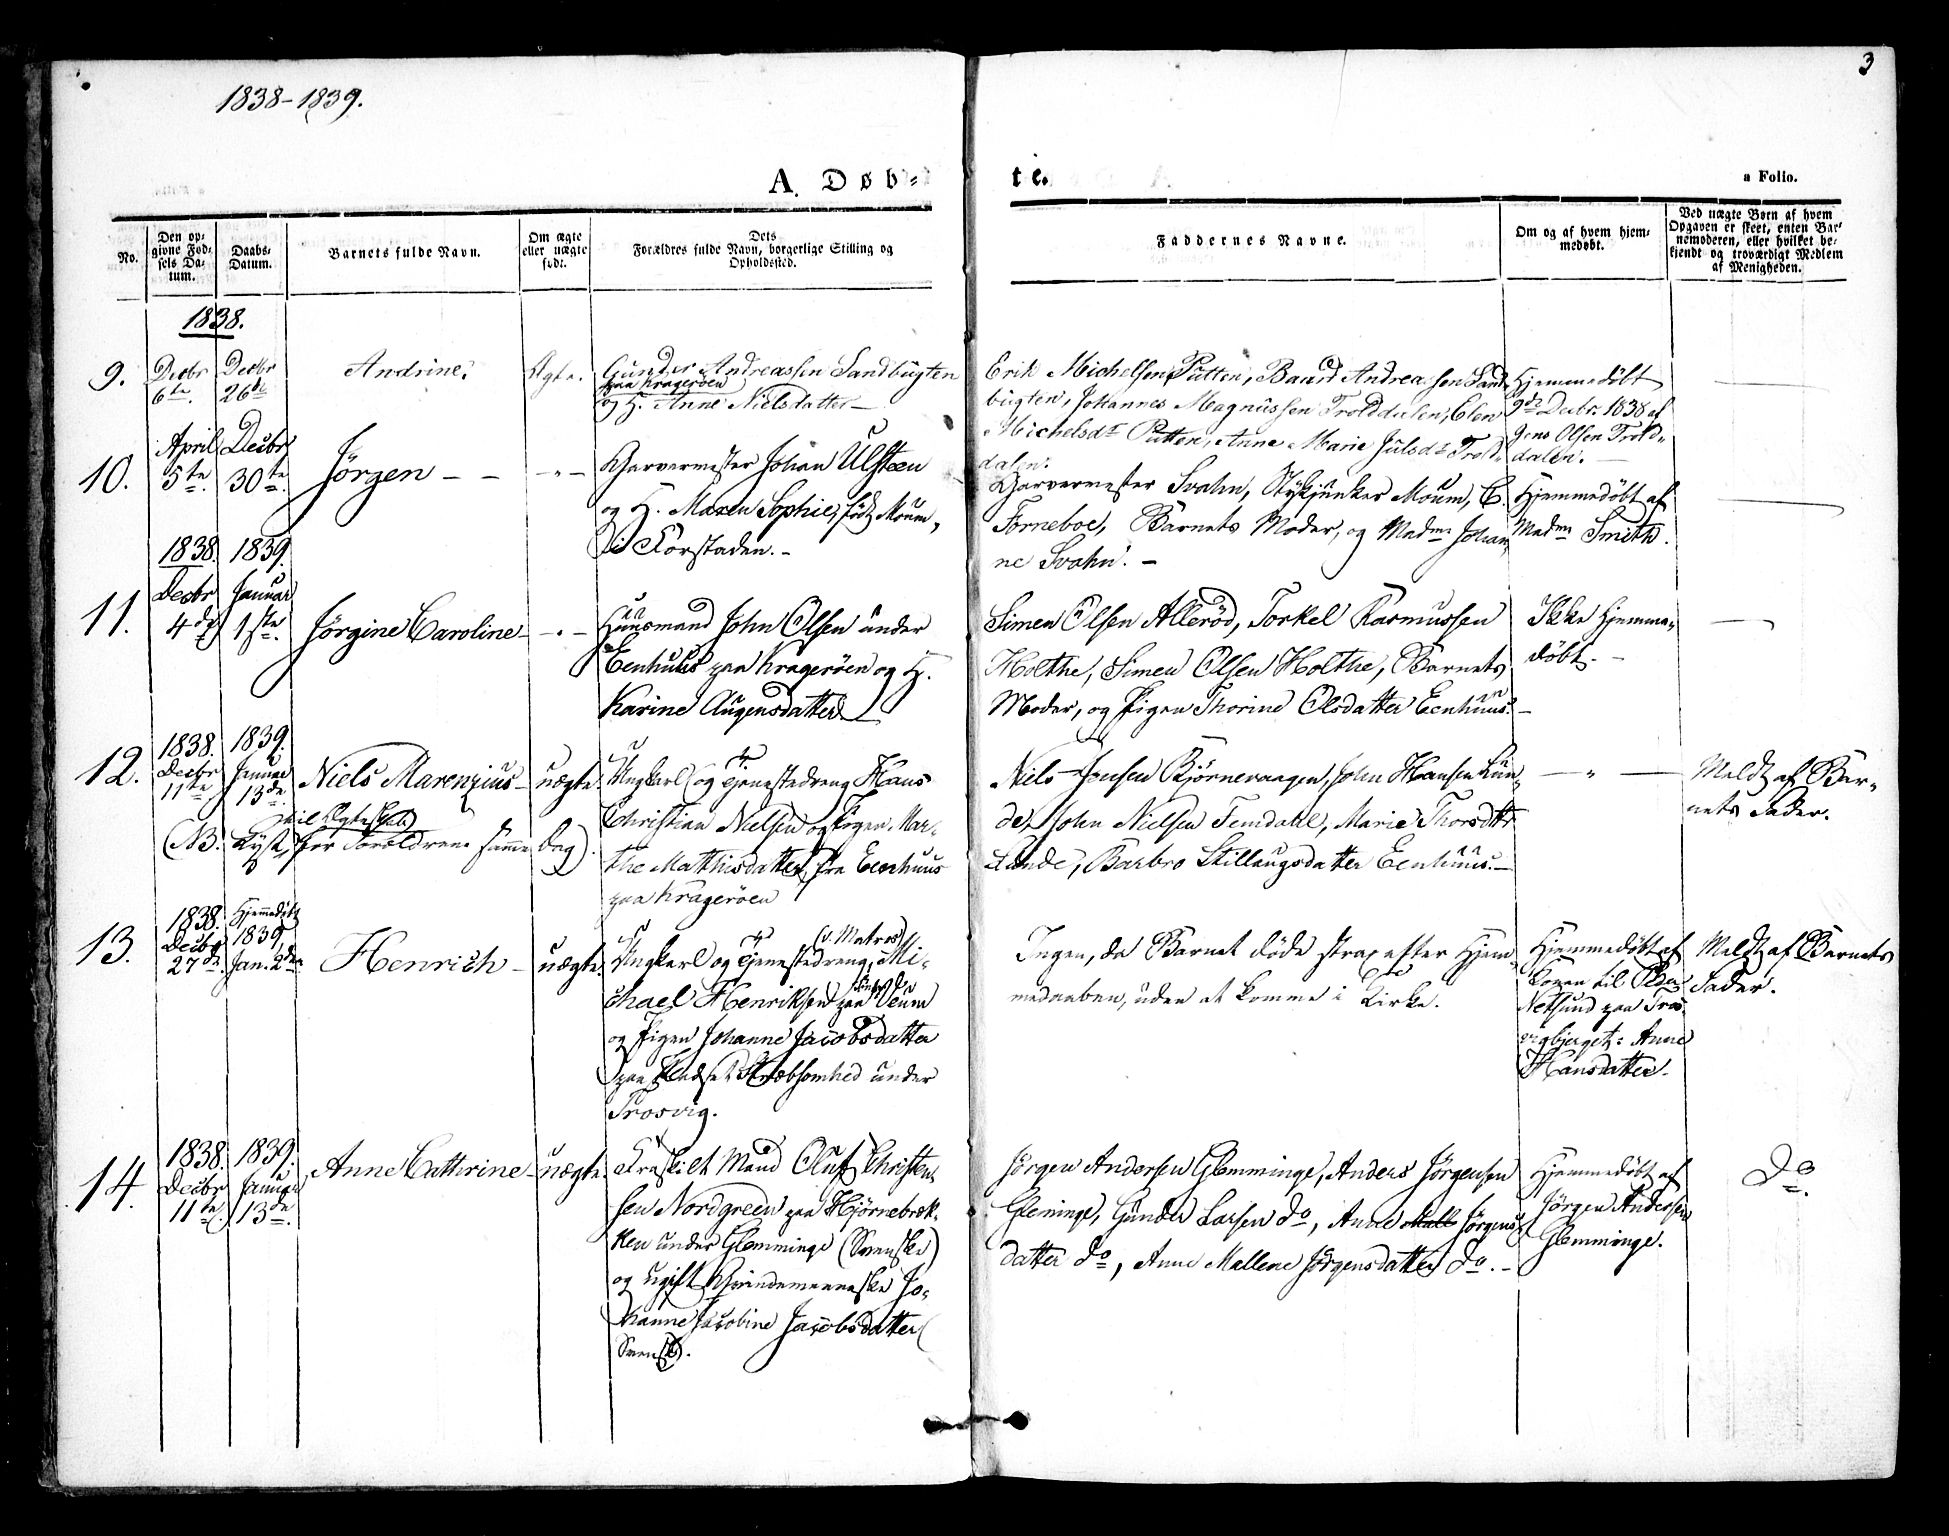 3
1838-1839.
A. Døb-
te.
a Folio.
No.
Den op-
givne Fød-
sels Da-
tum.
Daabs-
Datum.
Barnets fulde Navn.
Om ægte
eller uægte
født.
Dets
Forældres fulde Navn, borgerlige Stilling og
Opholdssted.
Faddernes Navne.
Om og af hvem hjem-
medøbt.
Ved uægte Børn af hvem
Opgaven er skeet, enten Bar-
nemoderen, eller hvilket be-
kjendt og troværdigt Medlem
af Menigheden.
1838.
9.
Decbr
6te.
Decbr
26de
Andrine.
Ægte.
Gunder Andreassen Sandbugten
paa Kragerøen
og H. Anne Nielsdatter –
Erik Michelsen Putten, Baard Andreassen Sand
bugten, Johannes Magnussen Trolddalen, Elen
Michelsdr Putten, Anne Marie Julsdr Trold-
dalen.
Hjemmedøbt
9de Decbr. 1838 af
Jens Olsen Trold-
dalen. –
10.
April
5te.
Decbr
30te.
Jørgen – –
– " –
Garvermester Johan Ulsteen
og H. Maren Sophie, født Moum,
i Forstaden. –
Garvermester Svahn, Stykjunker Moum, C.
Forneboe, Barnets Moder, og Madm Johan-
ne Svahn. –
Hjemmedøbt af
Madm Smith.
1838. 1839.
11.
Decbr
4de
Januar
1ste.
Jørgine Caroline –
– " –
Huusmand John Olsen under
Eenhuus paa Kragerøen og H.
Karine Augensdatter
Simen Olsen Allerød, Torkel Rasmussen
Holthe, Simen Olsen Holthe, Barnets
Moder, og Pigen Thorine Olsdatter Eenhuus. –
Ikke Hjemme-
døbt. –
1838. 1839.
12.
Decbr
11te
Januar
13de.
Niels Marenzius –
uægte.
Ungkarl og Tjenestedreng Hans
Christian Nielsen og Pigen Mar-
the Mathisdatter, fra Eenhuus
paa Kragerøen
til Ægteskab
(NB. Lyst for Forældrene samme Dag).
Niels Jensen Bjørnevaagen, John Hansen Lun-
de, John Nielsen Femdahl, Marie Thorsdtr
Lunde, Barbro Stillaugsdatter Eenhuus. –
– " –
Meldt af Bar-
nets Fader.
1838.
Hjemmedøbt
1839,
13.
Decbr
27de.
Jan. 2den
Henrich –
uægte.
(v. Matros)
Ungkarl og Tjenestedreng Mi-
chael Henriksen paa Veum
og Pigen Johanne Jacobsdatter
paa Pladset Stræbsomhed under
Trosvig.
Ingen, da Barnet døde strax efter Hjem-
medaaben, uden at komme i Kirke.
Hjemmedøbt af
Konen til Peder
Netsund paa Tros-
vigbjerget: Anne
Hansdatter.
Meldt af Barnets
Fader.
1838. 1839.
14.
Decbr
11te.
Januar
13de.
Anne Cathrine –
uægte.
Fraskilt Mand Oluf Christen-
sen Nordgreen paa Hjørnebræk-
ken under Glemminge (Svenske)
og ugift Qvindemenneske Jo-
hanne Jacobine Jacobsdatter
Svensk.
Jørgen Andersen Glemminge, Anders Jørgensen
Gleminge, Gunder Larsen do, Anne Mall Jørgens
datter do, Anne Mallene Jørgensdatter do. –
Hjemmedøbt af
Jørgen Andersen
Glemminge.
do.